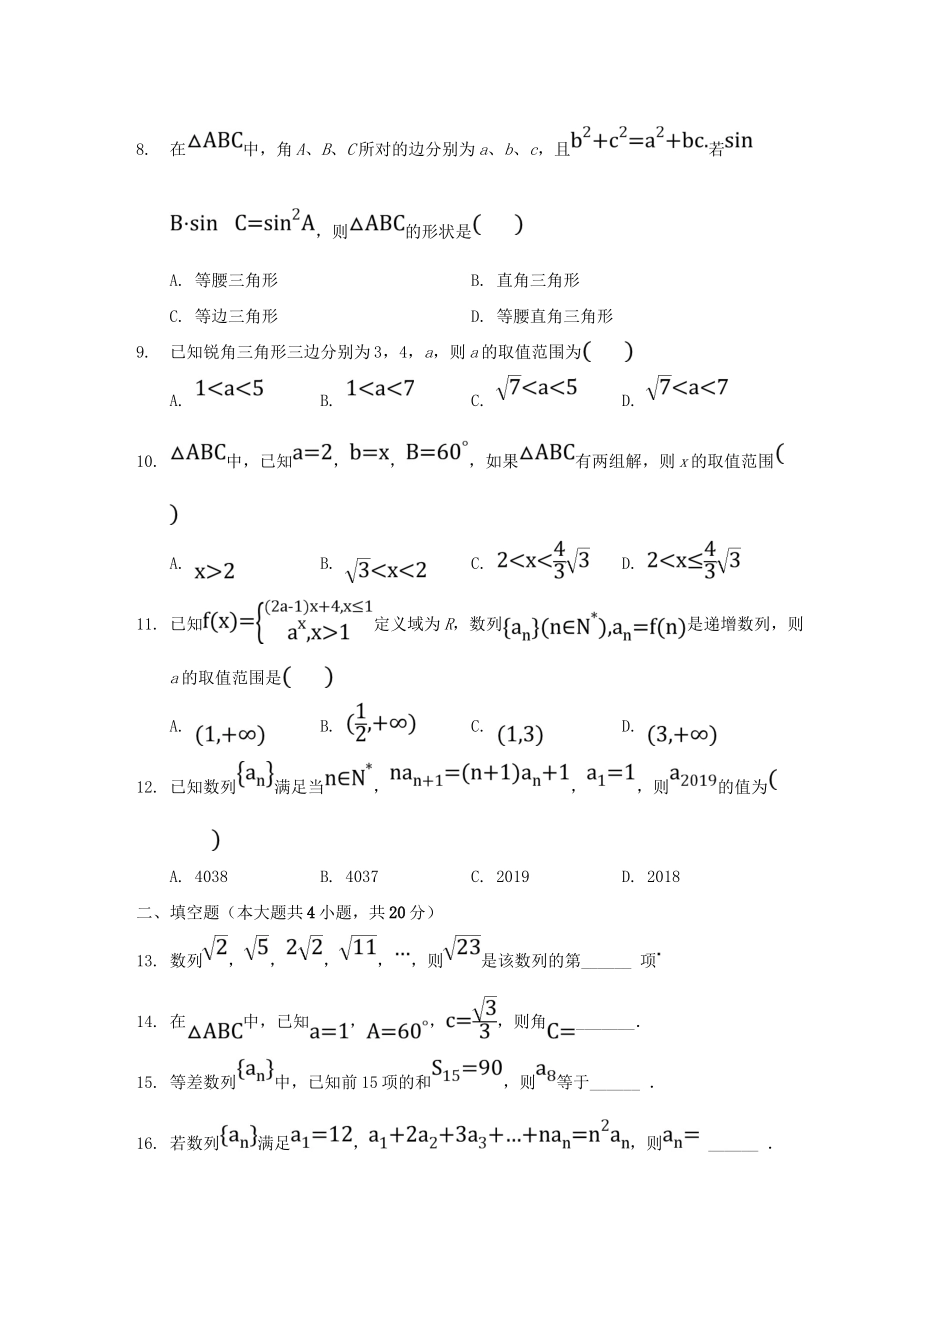 8. 在△ABC中，角 A、B、C所对的边分别为 a、b、c，且b²+c²=a²+bc.若sin
B·sin C=sin²A，则△ABC的形状是( )
A. 等腰三角形 B. 直角三角形
C. 等边三角形 D. 等腰直角三角形
9. 已知锐角三角形三边分别为 3，4，a，则 a 的取值范围为( )
A. 1<a<5 B. 1<a<7 C. √7<a<5 D. √7<a<7
10. △ABC中，已知a=2，b=x，B=60°，如果△ABC有两组解，则 x 的取值范围(
)
A. x>2 B. √3<x<2 C. 2<x<4/3√3 D. 2<x≤4/3√3
11. 已知f(x)={(2a-1)x+4,x≤1 aˣ,x>1定义域为 R，数列{aₙ}(n∈N*),aₙ=f(n)是递增数列，则
a 的取值范围是( )
A. (1,+∞) B. (1/2,+∞) C. (1,3) D. (3,+∞)
12. 已知数列{aₙ}满足当n∈N*，naₙ₊₁=(n+1)aₙ+1，a₁=1，则a₂₀₁₉的值为(
)
A. 4038 B. 4037 C. 2019 D. 2018
二、填空题（本大题共 4 小题，共 20 分）
13. 数列√2，√5，2√2，√11，…，则√23是该数列的第______ 项.
14. 在△ABC中，已知a=1，A=60°，c=√3/3，则角C=_______.
15. 等差数列{aₙ}中，已知前 15 项的和S₁₅=90，则a₈等于______ .
16. 若数列{aₙ}满足a₁=12，a₁+2a₂+3a₃+…+naₙ=n²aₙ，则aₙ= ______ .